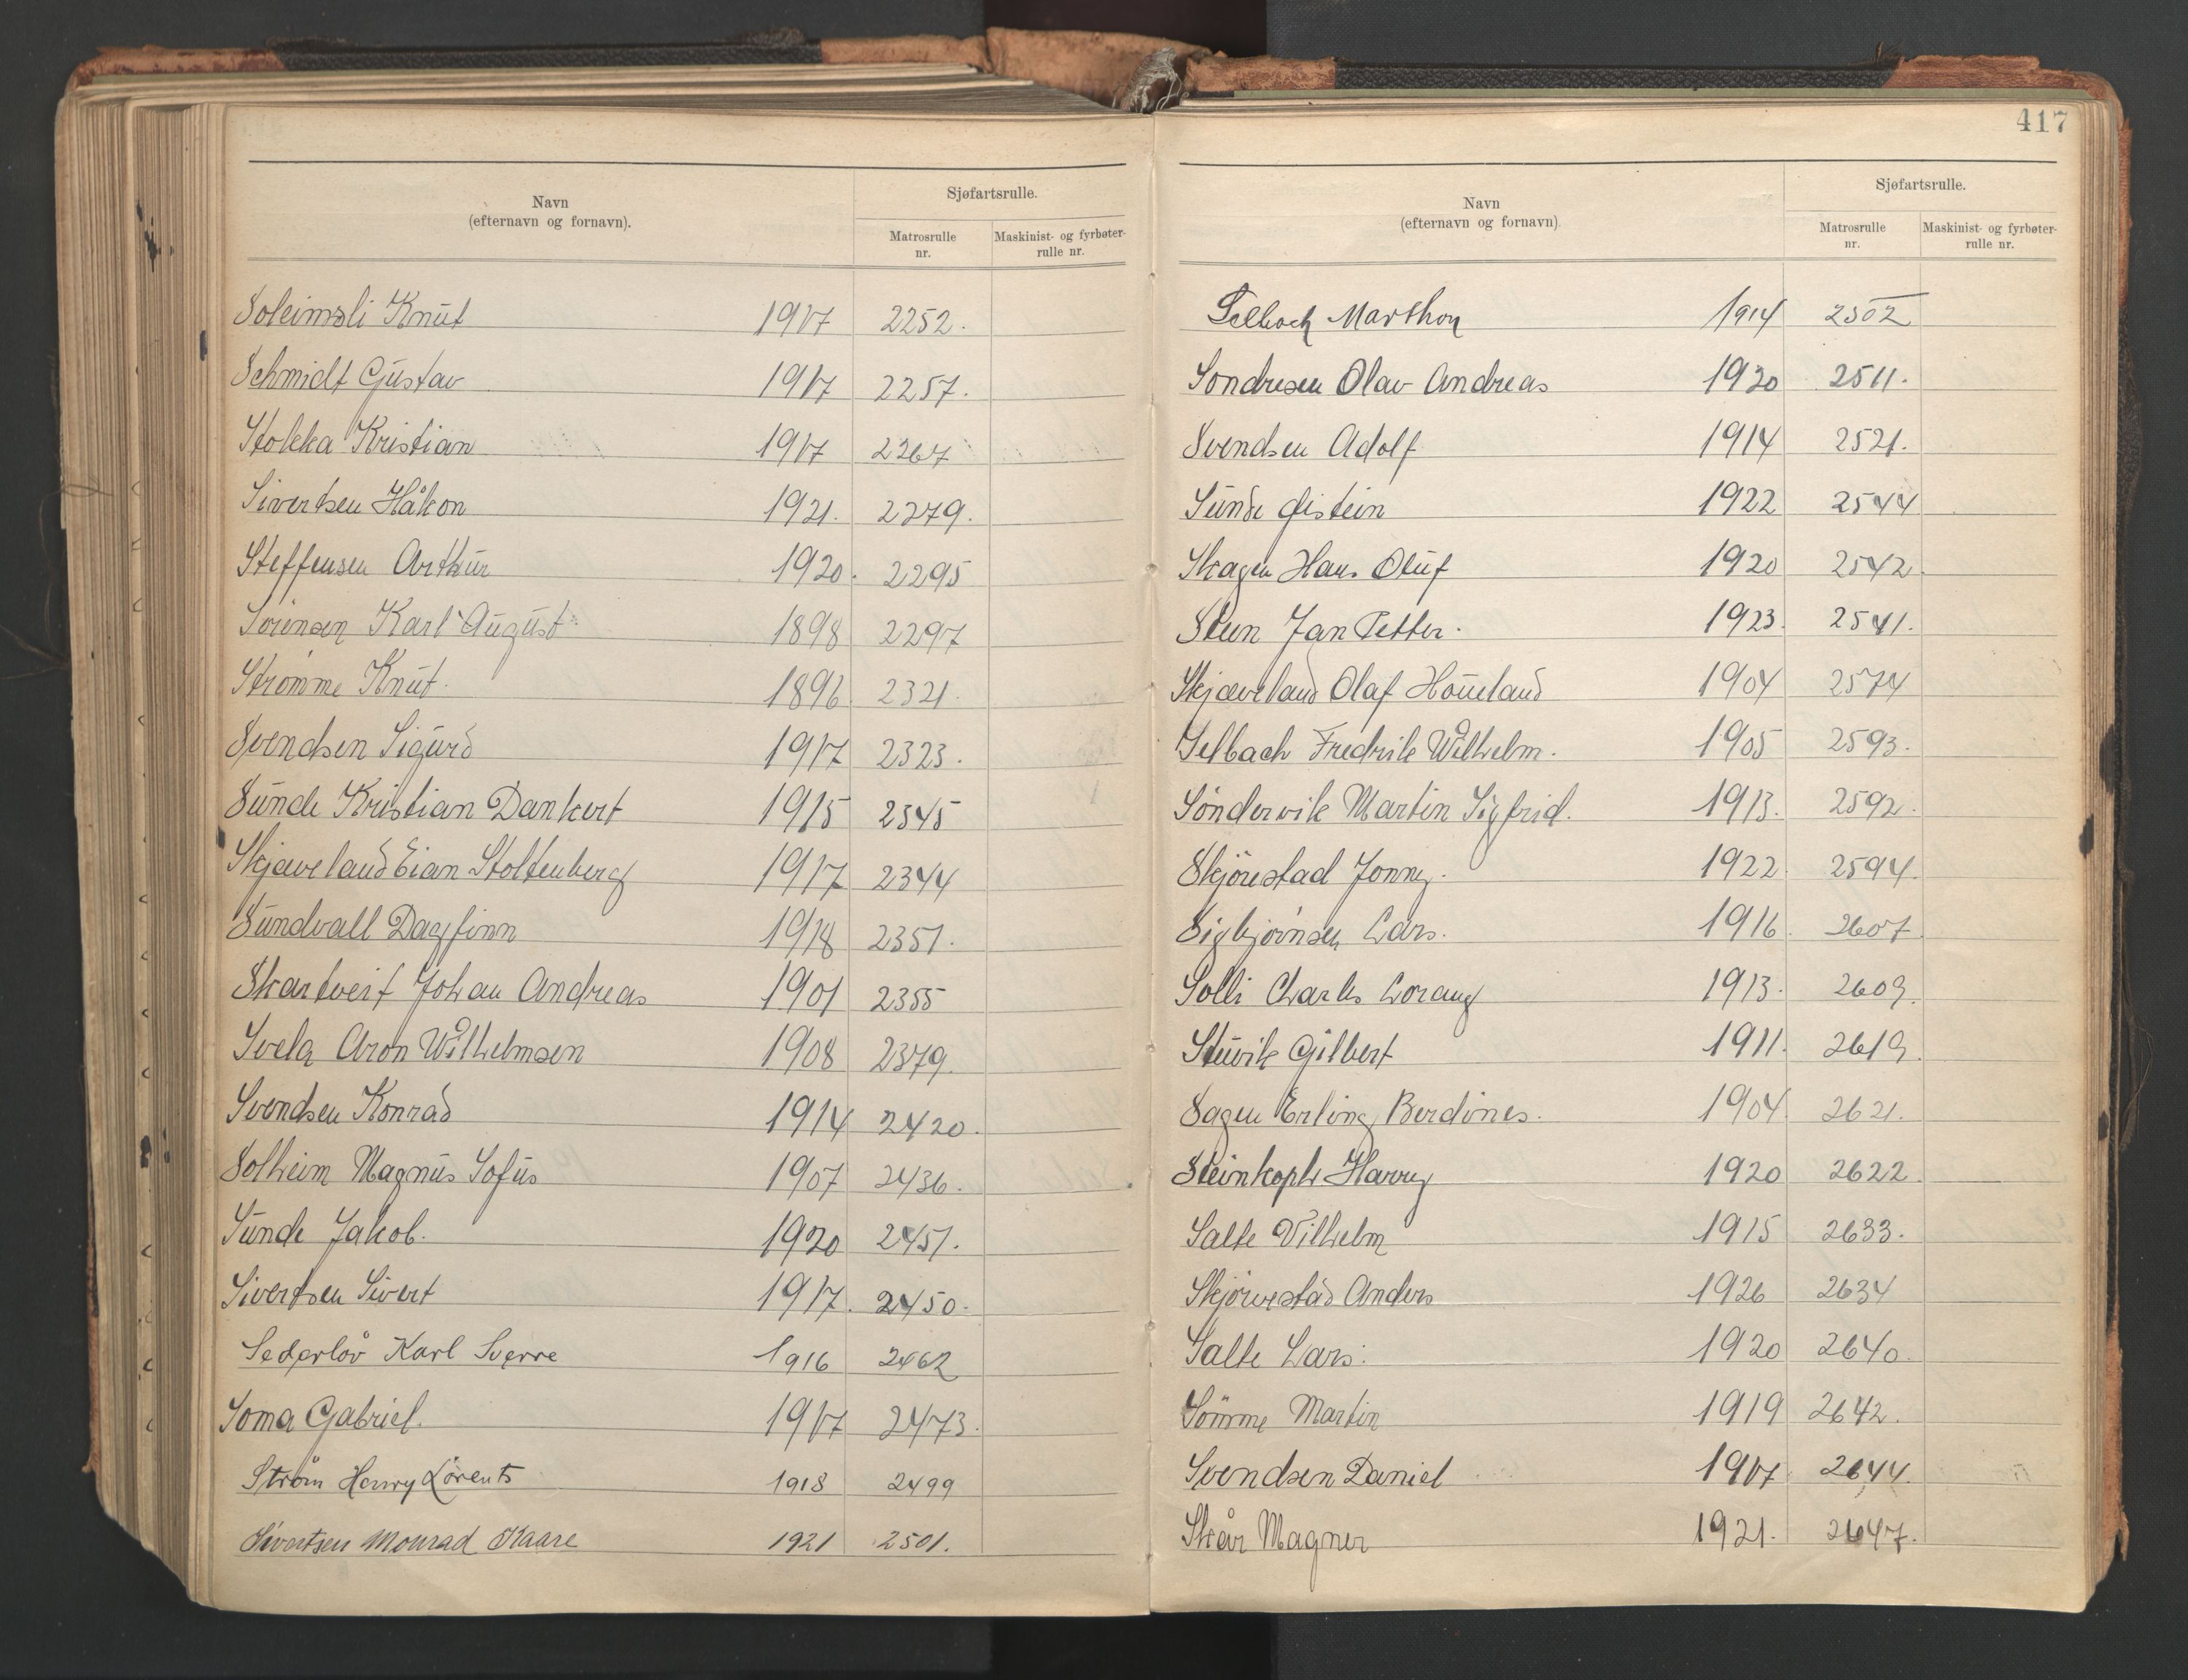 Navn
(efternavn og fornavn).
Sjøfartsrulle.
Matrosrulle nr.
Maskinist- og fyrbøter-rulle nr.
Soleimsli Knut 1917 2252.
Schmidt Gustav 1917 2257.
Stokka Kristian 1917 2267
Sivertsen Håkon 1921. 2279.
Steffensen Arthur 1920. 2295
Sörensen Karl August 1898 2297
Strömme Knut. 1896 2321.
Svendsen Sigurd 1917 2323.
Sunde Kristian Dankert 1915 2345
Skjæveland Eian Stoltenberg 1917 2344
Sundvall Dagfinn 1918 2351.
Skartveit Johan Andreas 1901 2355
Svela Aron Wilhelmsen 1908 2379.
Svendsen Konrad 1914 2420.
Solheim Magnus Sofus 1907 2436.
Sunde Jakob. 1920 2451.
Sivertsen Sivert 1917. 2450.
Sederlöv Karl Sverre 1916 2462
Soma Gabriel. 1917 2473.
Ström Henry Lorents 1918 2499
Sivertsen Monrad Kaare 1921 2501.
417
Navn
(efternavn og fornavn).
Sjøfartsrulle.
Matrosrulle nr.
Maskinist- og fyrbøter-rulle nr.
Selbach Marthon 1914 2502
Sondresen Olav Andreas 1920 2511.
Svendsen Adolf 1914 2521.
Sunde Øistein 1922 2544
Skagen Hans Oluf 1920 2542.
Steen Jan Petter. 1923. 2541.
Skjæveland Olaf Houeland 1904 2574
Selbach Fredrik Wilhelm. 1905 2593.
Söndervik Martin Sigfrid. 1913. 2592.
Skjörestad Jonny. 1922. 2594.
Sigbjörnsen Lars. 1916. 2607
Solli Charles Lorang 1913. 2609.
Stuvik Gilbert 1911. 2619.
Sagen Erling Berdines. 1904. 2621.
Steinkoph Harry 1920 2622.
Salte Vilhelm 1915 2633.
Skjörestad Anders 1926 2634
Salte Lars. 1920 2640.
Sömme Martin 1919 2642.
Svendsen Daniel 1917. 2644.
Skår Magner 1921. 2647.